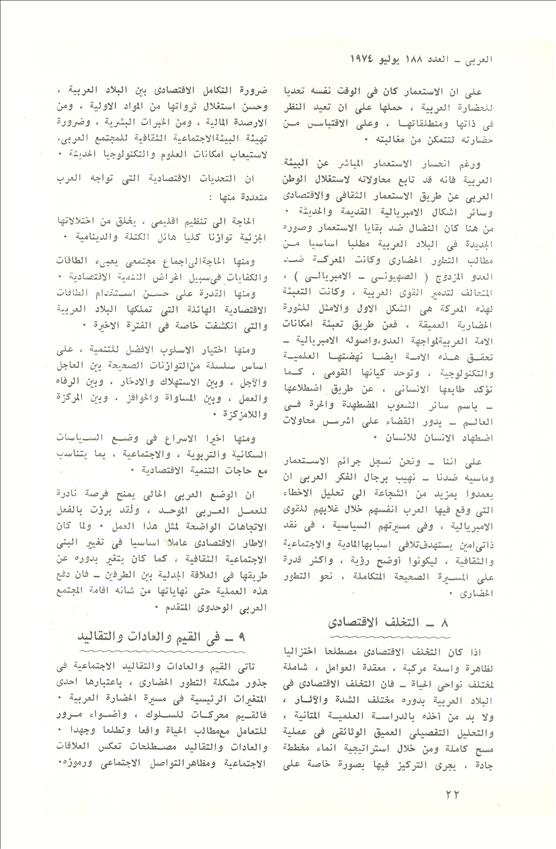 العربى ــ العدد ١٨٨ يوليو ١٩٧٤
على ان الاستعمار كان فى الوقت نفسه تحديا
للحضارة العربية ، حملها على ان تعيد النظر
فى ذاتها ومنطلقاتها ، وعلى الاقتباس من
حضارته لتتمكن من مغالبته ٠
ورغم انحسار الاستعمار المباشر عن البيئة
العربية فانه قد تابع محاولاته لاستغلال الوطن
العربى عن طريق الاستعمار الثقافى والاقتصادى
وسائر اشكال الامبريالية القديمة والحديثة ٠
من هنا كان النضال ضد بقايا الاستعمار وصوره
الجديدة فى البلاد العربية مطلبا اساسيا من
مطالب التطور الحضارى وكانت المعركة ضد
العدو المزدوج ( الصهيونى ــ الامبريالى ) ،
المتحالف لتدمير القوى العربية ، وكانت التعبئة
لهذه المعركة هى الشكل الاول والامثل للثورة
الحضارية العميقة ، فعن طريق تعبئة امكانات
الامة العربية لمواجهة العدو واصوله الامبريالية ــ
تحقق هذه الامة ايضا نهضتها العلمية
والتكنولوجية ، وتوحد كيانها القومى ، كما
تؤكد طابعها الانسانى ، عن طريق اضطلاعها
ــ باسم سائر الشعوب المضطهدة والحرة فى
العالم ــ بدور القضاء على اشرس محاولات
اضطهاد الانسان للانسان ٠
على اننا ــ ونحن نسجل جرائم الاستعمار
ومآسيه ضدنا ــ نهيب برجال الفكر العربى ان
يعمدوا بمزيد من الشجاعة الى تحليل الاخطاء
التى وقع فيها العرب انفسهم خلال غلابهم للقوى
الامبريالية ، وفى مسيرتهم السياسية ، فى نقد
ذاتى امين يستهدف تلافى اسبابها المادية والاجتماعية
والثقافية ، ليكونوا أوضح رؤية ، واكثر قدرة
على المسيرة الصحيحة المتكاملة ، نحو التطور
الحضارى ٠
٨ ــ التخلف الاقتصادى
اذا كان التخلف الاقتصادى مصطلحا اختزاليا
لظاهرة واسعة مركبة ، معقدة العوامل ، شاملة
لمختلف نواحى الحياة ــ فان التخلف الاقتصادى فى
البلاد العربية بدوره مختلف الشدة والآثار ،
ولا بد من أخذه بالدراسة العلمية المتأنية ،
والتحليل التفصيلى العميق الوثائقى فى عملية
مسح كاملة ومن خلال استراتيجية انماء مخططة
جادة ، يجرى التركيز فيها بصورة خاصة على
ضرورة التكامل الاقتصادى بين البلاد العربية ،
وحسن استغلال ثرواتها من المواد الاولية ، ومن
الارصدة المالية ، ومن الخبرات البشرية ، وضرورة
تهيئة البيئة الاجتماعية الثقافية للمجتمع العربى،
لاستيعاب امكانات العلوم والتكنولوجيا الحديثة ٠
ان التحديات الاقتصادية التى تواجه العرب
متعددة منها :
الحاجة الى تنظيم اقليمى ، يخلق من اختلالاتها
الجزئية توازنا كليا هائل الكتلة والدينامية ٠
ومنها الحاجة الى اجماع مجتمعى يعبىء الطاقات
والكفايات فى سبيل اغراض التنمية الاقتصادية ٠
ومنها القدرة على حسن استخدام الطاقات
الاقتصادية الهائلة التى تملكها البلاد العربية
والتى انكشفت خاصة فى الفترة الاخيرة ٠
ومنها اختيار الاسلوب الافضل للتنمية ، على
اساس سلسلة من التوازنات الصحيحة بين العاجل
والآجل ، وبين الاستهلاك والادخار ، وبين الرفاه
والعمل ، وبين المساواة والحوافز ، وبين المركزة
واللامركزة ٠
ومنها اخيرا الاسراع فى وضع السياسات
السكانية والتربوية ، والاجتماعية ، بما يتناسب
مع حاجات التنمية الاقتصادية ٠
ان الوضع العربى الحالى يمنح فرصة نادرة
للعمل العربى الموحد ، ولقد برزت بالفعل
الاتجاهات الواضحة لمثل هذا العمل ٠ ولما كان
الاطار الاقتصادى عاملا اساسيا فى تغيير البنى
الاجتماعية الثقافية ، كما كان يتغير بدوره عن
طريقها فى العلاقة الجدلية بين الطرفين ــ فان دفع
هذه العملية حتى نهاياتها من شأنه اقامة المجتمع
العربى الوحدوى المتقدم ٠
٩ ــ فى القيم والعادات والتقاليد
تأتى القيم والعادات والتقاليد الاجتماعية فى
جذور مشكلة التطور الحضارى ، باعتبارها احدى
المتغيرات الرئيسية فى مسيرة الحضارة العربية ٠
فالقيم محركات للسلوك ، وأضواء مرور
للتعامل مع مطالب الحياة واقعا وتطلعا وجهدا ٠
والعادات والتقاليد مصطلحات تعكس العلاقات
الاجتماعية ومظاهر التواصل الاجتماعى ورموزه٠
٢٢